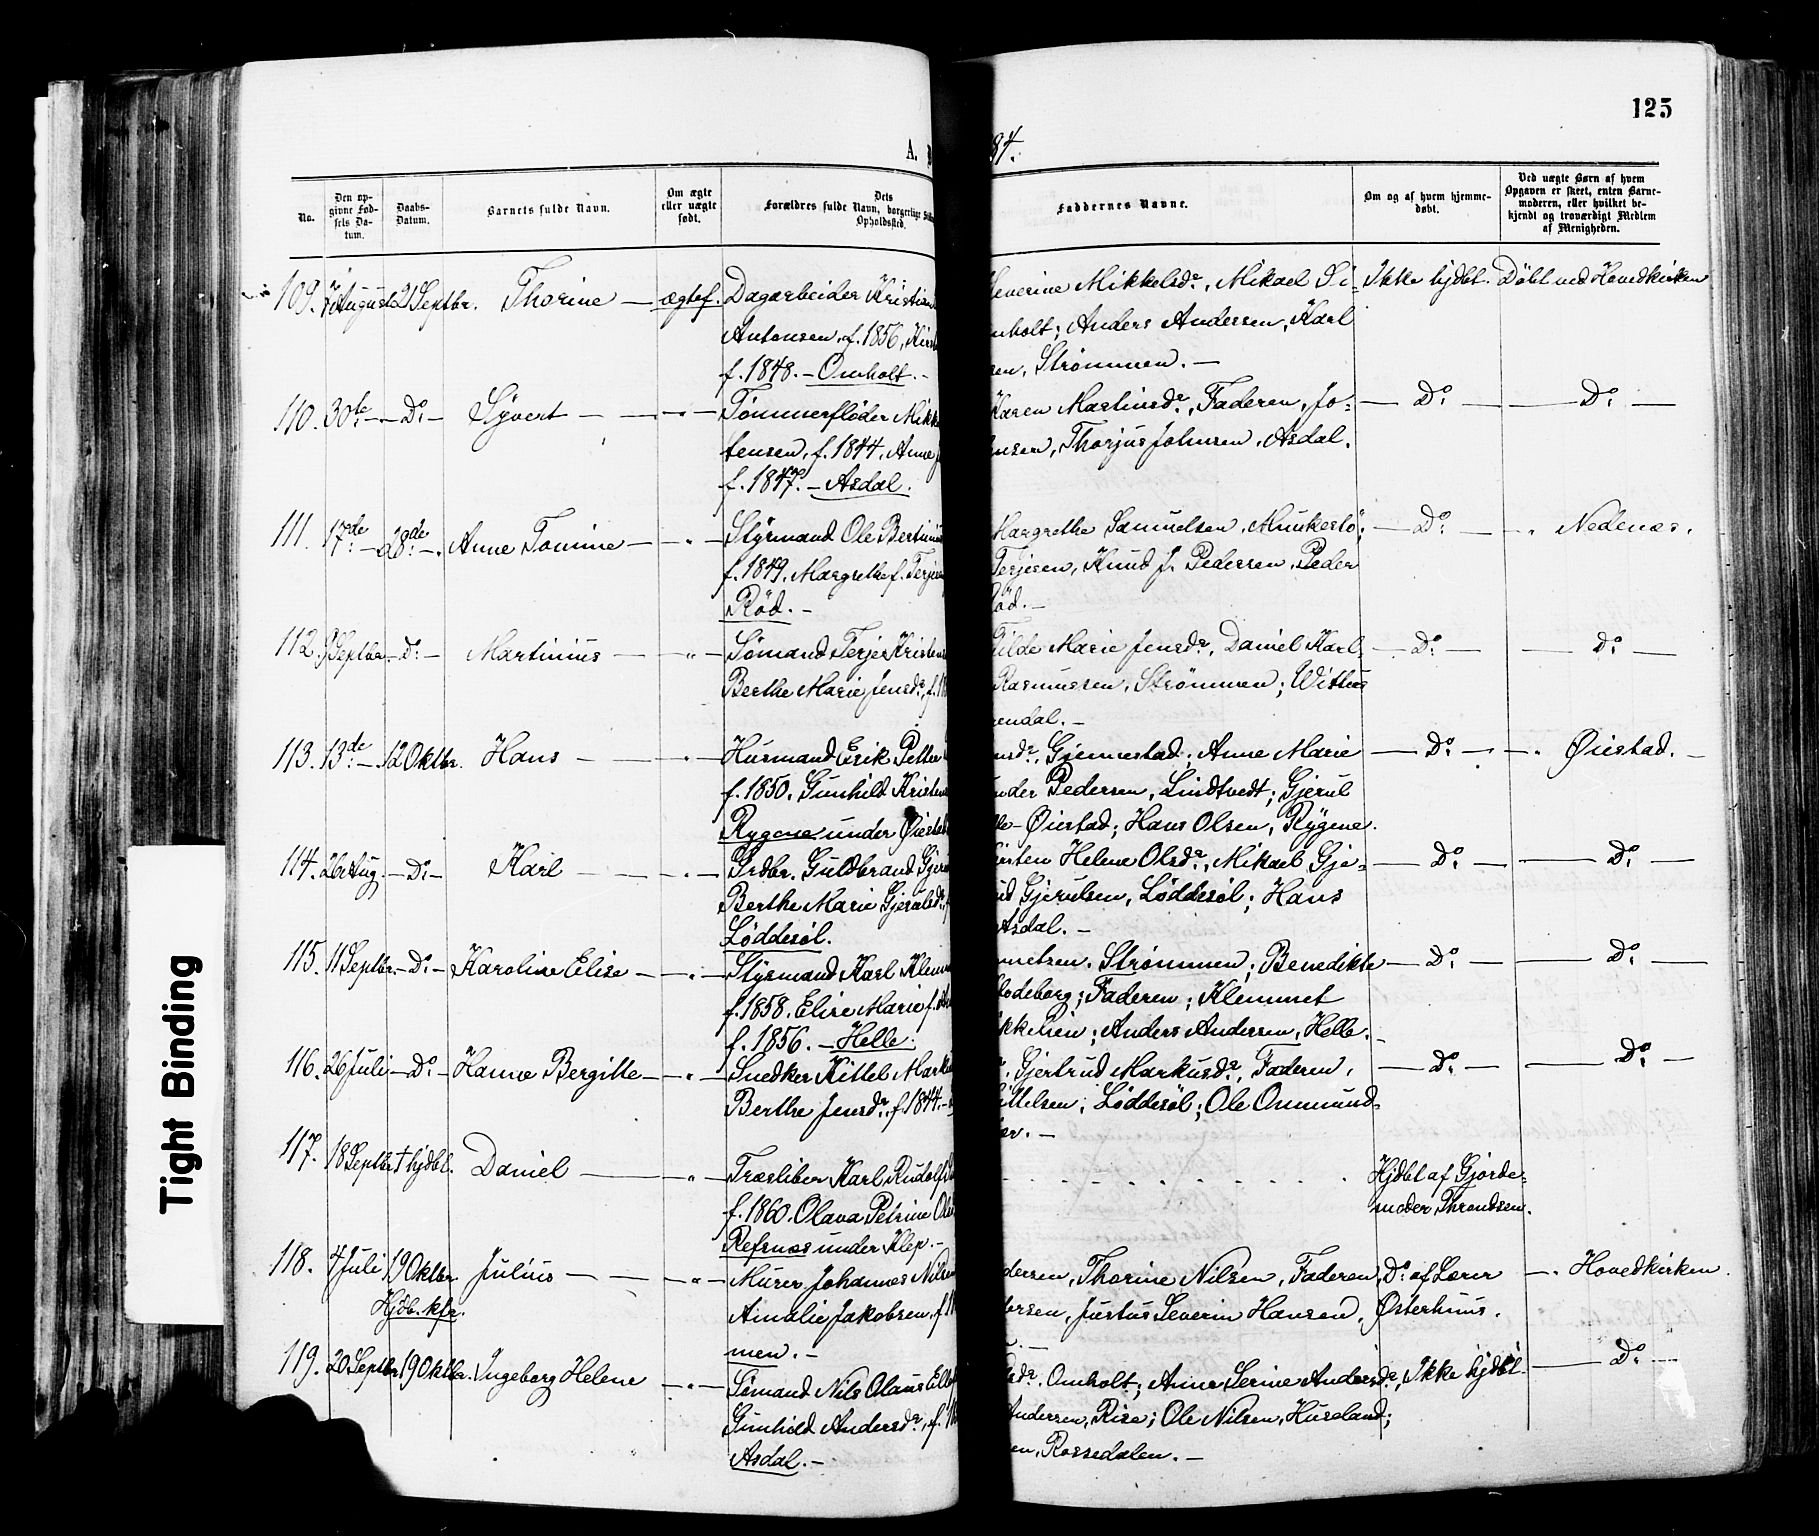 125
A.
84.
No.
Den op-
givne Fød-
sels Da-
tum.
Daabs-
Datum.
Barnets fulde Navn.
Om ægte
eller uægte
født.
Dets
Forældres fulde Navn, borgerlige
Opholdssted.
Faddernes Navne.
Om og af hvem hjemme-
døbt.
Ved uægte Børn af hvem
Opgaven er skeet, enten Barne-
moderen, eller hvilket be-
kjendt og troværdigt Medlem
af Menigheden.
109. August 21 Septbr. Thorine — ægtef. Dagarbeider Kristian
Antonsen, f. 1856,
f. 1848. – Omholt. –
Severine Mikkelsdr., Mikael Si-
mholt; Anders Andersen, Karl
sen, Strømmen. —
Ikke hjdbt. Døbt ved Hovedkirken
110. 30te – – Do – Syvert — — „ — Tømmerfløder Mikk
tensen, f. 1844, Anne
f. 1847. – Asdal.
Karen Martinsdr., Faderen, Jo-
ensen, Thorjus Johnsen, Asdal.
— Do. — — Do. —
111. 17de – 28de –. Anne Tomine — „ — Styrmand Ole Bertinius
f. 1849, Margrethe f. Terjes
Rød. –
Margrethe Samuelsen, Munkestø;
Terjesen, Knud J. Pedersen, Peder
Rød. –
— Do. — „ Nedenæs.
112. 9 Septbr. – Do – Martinius — „ — Sømand Terje Kristens
Berthe Marie Jensdr., f. 18
Tilde Marie Jensdr., Daniel Karl
Rasmussen, Strømmen;
endal. –
— Do. — — Do. —
113. 13de – 12 Oktbr. Hans — — „ — Husmand Erik Petter
f. 1850. Gunhild Kristens
Rygene under Øiestad
nsdr., Gjennestad; Anne Marie
nder Pedersen, Lindtvedt; Gjerul
lle – Øiestad; Hans Olsen, Rygene.
— Do. — „ Øiestad. –
114. 26 Aug. – Do – Karl — — „ — Grdbr. Guldbrand Gjeru
Berthe Marie Gjerulsdr.,
Løddesøl.
Kirsten Helene Olsdr., Mikael Gje-
ud Gjerulsen, Løddesøl; Hans
Asdal. –
— Do. — — Do. —
115. 11 Septbr. – Do – Karoline Elise — „ — Styrmand Karl Klemm
f. 1858. Elise Marie f.
f. 1856. – Helle.
metsen, Strømmen; Benedikte
lodeborg; Faderen; Klemmet
ikkelsen; Anders Andersen, Helle. –
— Do. — — Do. —
116. 26 Juli – Do – Hanne Bergitte — „ — Snedker Kittel Marku
Berthe Jensdr., f. 1844. –
, Gjertrud Markusdr., Faderen,
ittelsen, Løddesøl; Ole Ommund-
er. –
— Do. — — Do. —
117. 18 Septbr. † hjdbt. Daniel — „ — Træsliber Karl Rudolf
f. 1860. Olava Petrine Ols
Refsnæs under Klep. –
Hjdbt af Gjorde-
moder Throndsen.
118. 4 Juli 19 Oktbr. Julius — — „ — Murer Johannes Nilsen
Hjdb. kfr.
Amalie Jakobsen, f. 18
men. –
dersen, Thorine Nilsen, Faderen,
ersen, Justus Severin Hansen,
Do. af Lærer
Østerhuus.
— „ Hovedkirken.
119. 20 Septbr. 19 Oktbr. Ingeborg Helene — „ — Sømand Nils Olaus Ell
Gunhild Andersdr., f. 18
Asdal. –
sdr., Omholt; Anne Serine Andersdr.,
Andersen, Rise; Ole Nilsen, Huseland;
en, Rossedalen. –
Ikke hjdbt.
— Do. —
Tight Binding